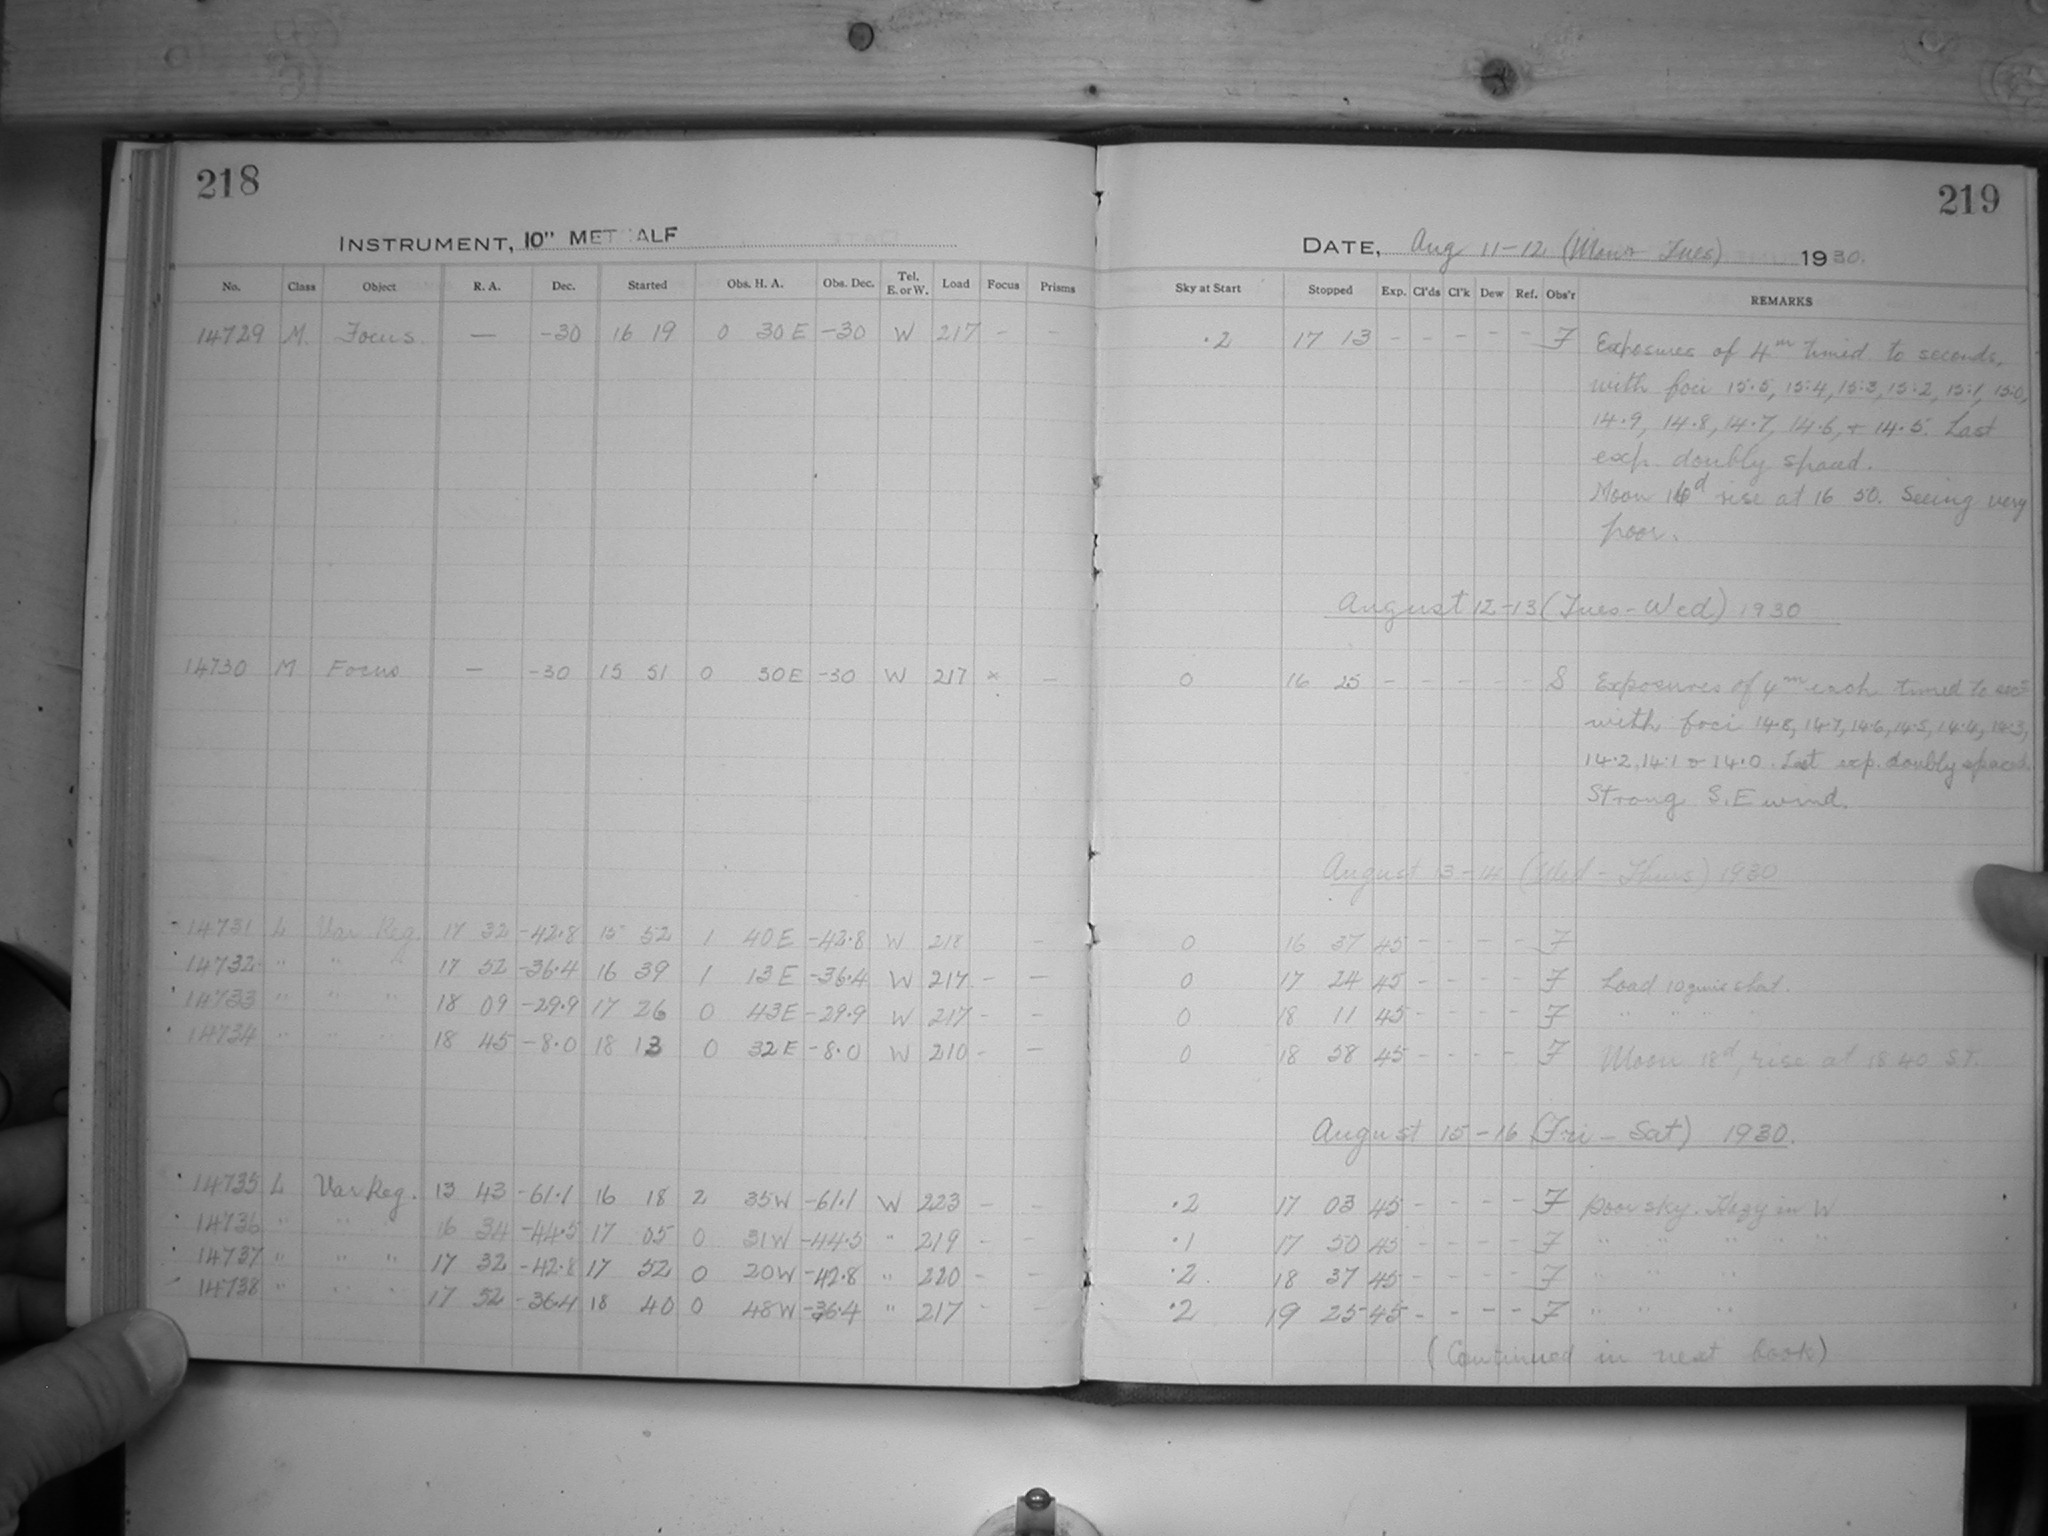 218
INSTRUMENT, 10" METCALF
No. Class Object R. A. Dec. Started Obs. H. A. Obs. Dec. Tel. E. or W. Load Focus Prisms
14729 M. Focus. — -30 16 19 0 30 E -30 W 217 - -
14730 M Focus — -30 15 51 0 50 E -30 W 217 × —
14731 L Var Reg. 17 32 -42.8 15 52 1 40 E -42.8 W 218 -
14732 " " " 17 52 -36.4 16 39 1 13 E -36.4 W 217 - -
14733 " " " 18 09 -29.9 17 26 0 43 E -29.9 W 217 -
14734 " " " 18 45 -8.0 18 13 0 32 E -8.0 W 210 - -
14735 L Var Reg. 13 43 -61.1 16 18 2 35 W -61.1 W 223 - -
14736 " " " 16 34 -44.5 17 05 0 31 W -44.5 " 219 - -
14737 " " " 17 32 -42.8 17 52 0 20 W -42.8 " 220 - -
14738 " " " 17 52 -36.4 18 40 0 48 W -36.4 " 217 - -
219
DATE, Aug 11-12 (Mon - Tues) 1930.
Sky at Start Stopped Exp. Cl'ds Cl'k Dew Ref. Obs'r REMARKS
.2 17 13 - - - - - F Exposures of 4m timed to seconds,
with foci 15.5, 15.4, 15.3, 15.2, 15.1, 15.0,
14.9, 14.8, 14.7, 14.6, + 14.5. Last
exp. doubly spaced.
Moon 16d rise at 16 50. Seeing very
poor.
August 12-13 (Tues-Wed) 1930
0 16 25 - - - - - S Exposures of 4m each timed to secs
with foci 14.8, 14.7, 14.6, 14.5, 14.4, 14.3,
14.2, 14.1 + 14.0. Last exp. doubly spaced.
Strong S.E wind.
August 13-14 (Wed - Thurs) 1930
0 16 37 45 - - - - F
0 17 24 45 - - - - F Load 10 shot.
0 18 11 45 - - - - F " " "
0 18 58 45 - - - - F Moon 18d, rise at 18 40 S.T.
August 15-16 (Fri - Sat) 1930.
.2 17 03 45 - - - - F Poor sky. Hazy in W
.1 17 50 45 - - - - F " " " " "
.2 18 37 45 - - - - F " " "
.2 19 25 45 - - - - F " " "
(Continued in next book)